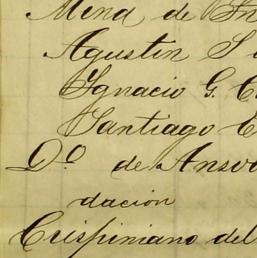 Mena de
Agustin S
Ignacio G. C
Santiago E
D.º de Ansor
dacion
Crispiniano del